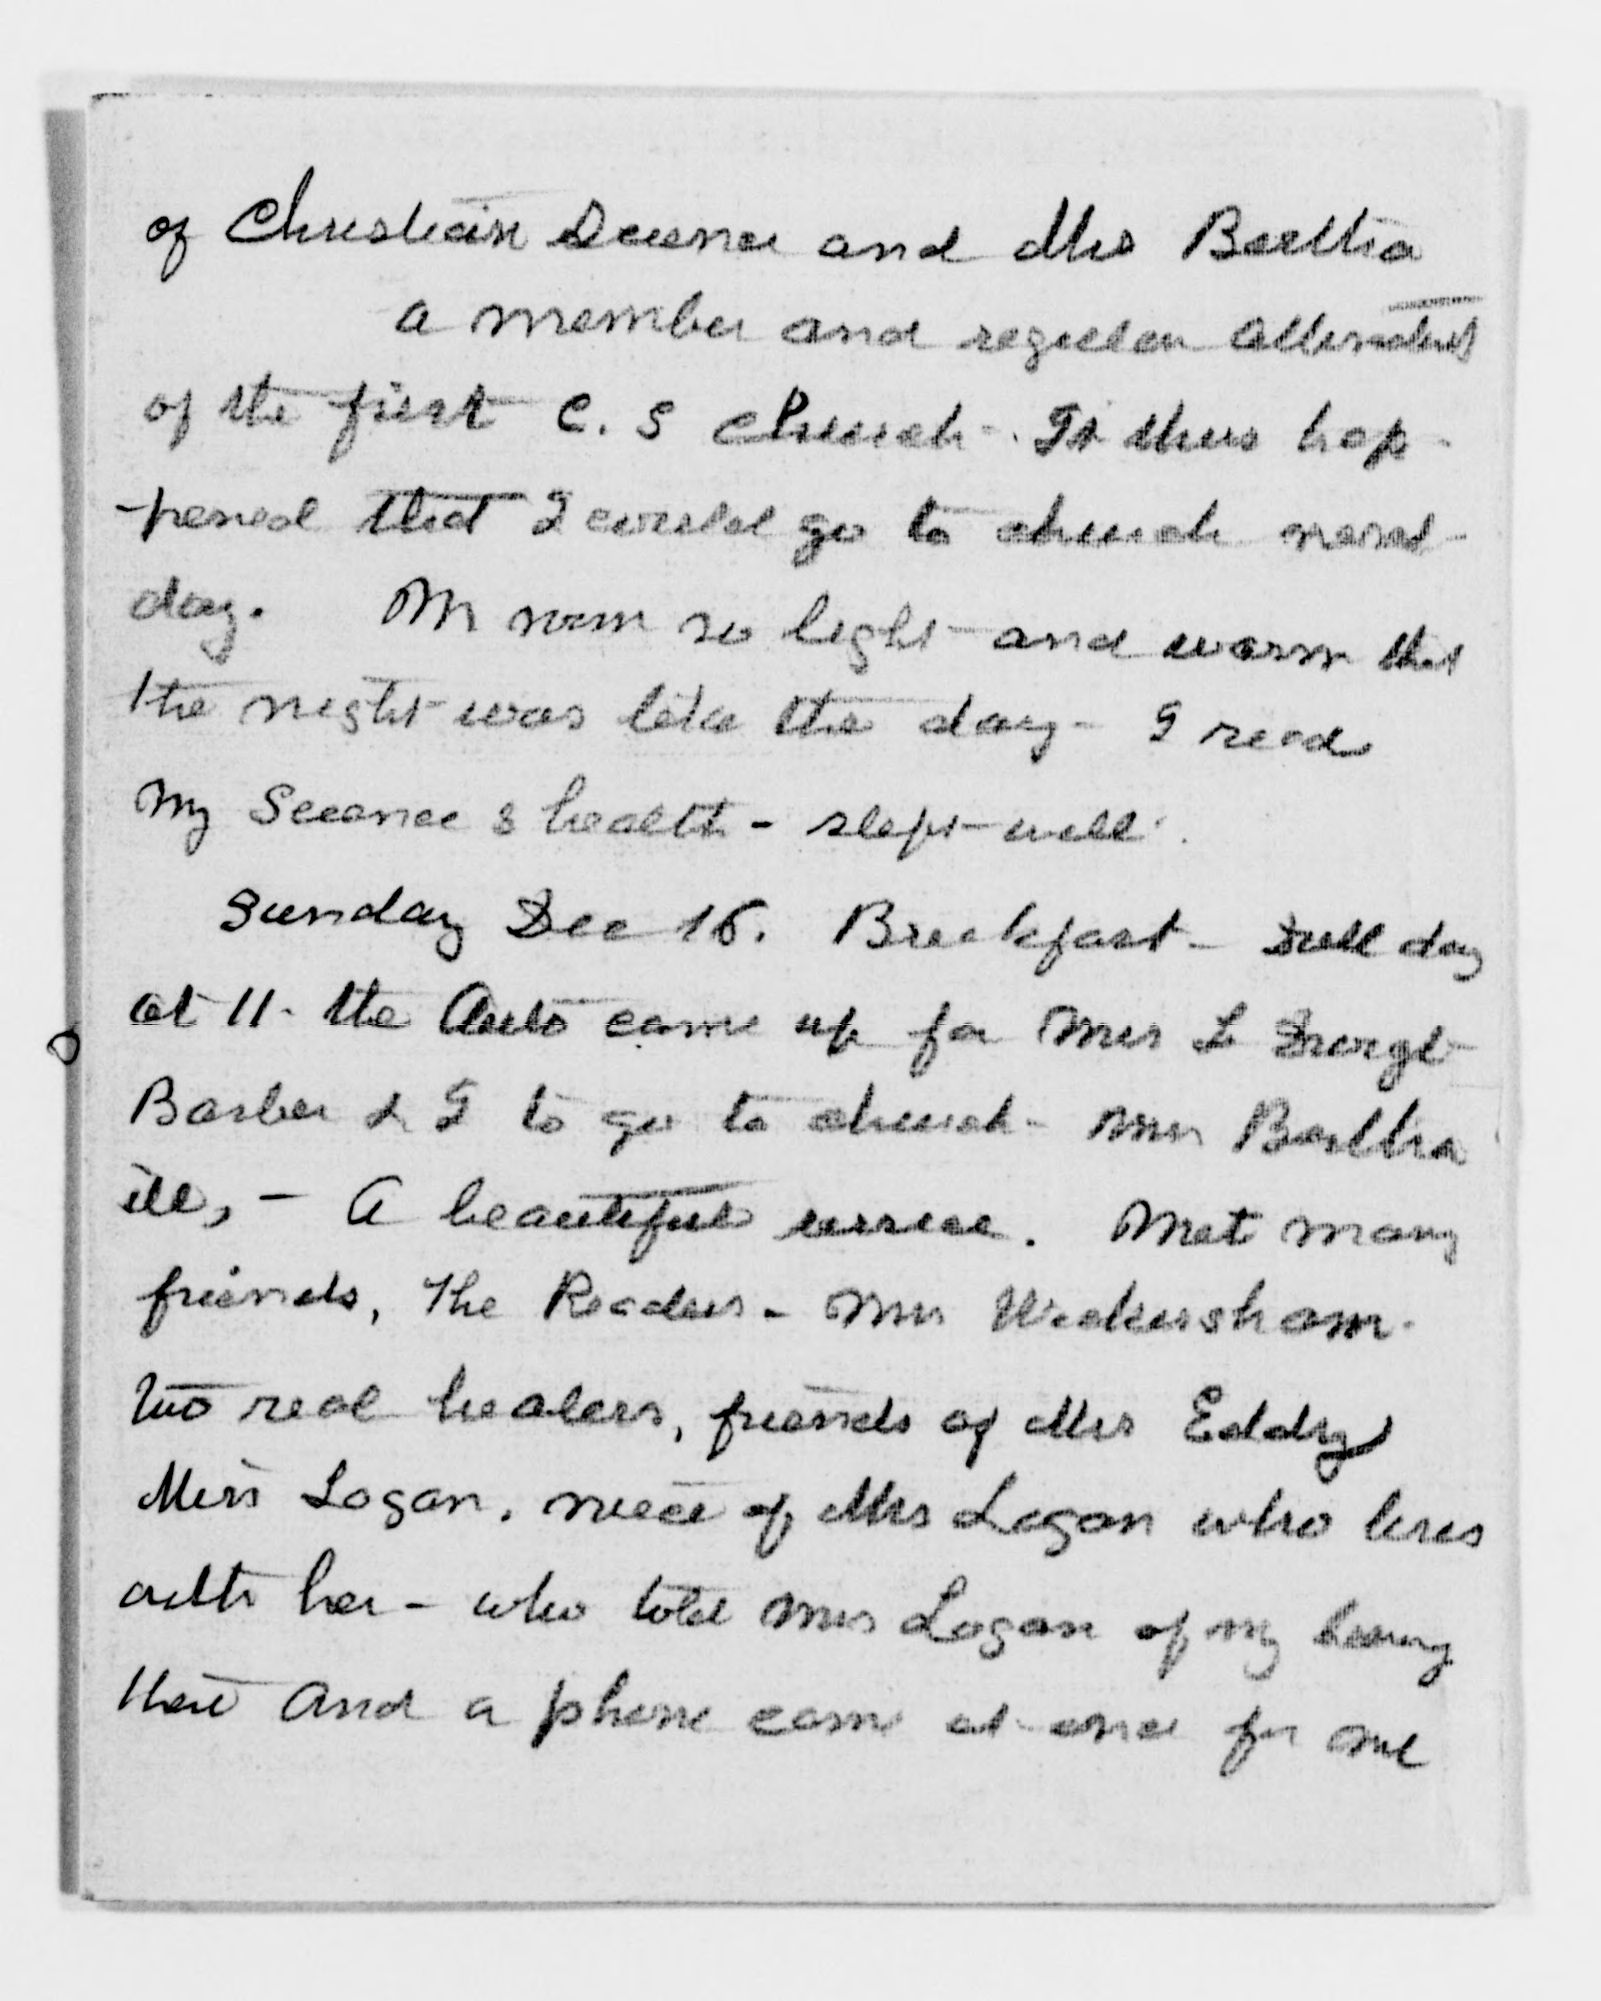 of Christian Science and Mrs Bertha
a member and regular attendent
of the first C. S church - It thus hap-
-pened that I could go to church next
day. M room so light and warm that
the night was like the day - I read
my Science & health - slept well.
Sunday Dec 16. Breakfast - Dull day
at 11. the Auto came up for Mrs L
Barber & I to go to church - Mrs Bertha
ill, - A beautiful service. Met many
friends, The Readers - Mrs Wickersham.
two real healers, friends of Mrs Eddy
Miss Logan, niece of Mrs Logan who lives
with her - who told Mrs Logan of my being
there and a phone came at once for me